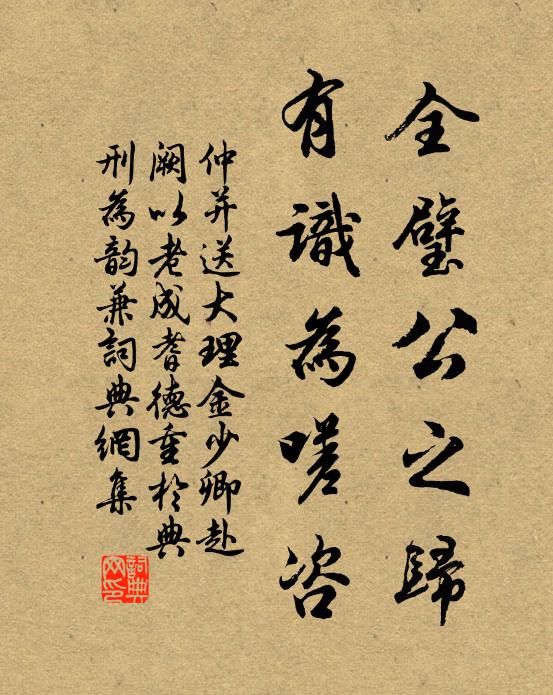 全璧公之歸
有識為嗟咨
仲并送大理金少卿赴
闕以老成耆德重於典
刑為韵兼詞典網集
詞典
网印